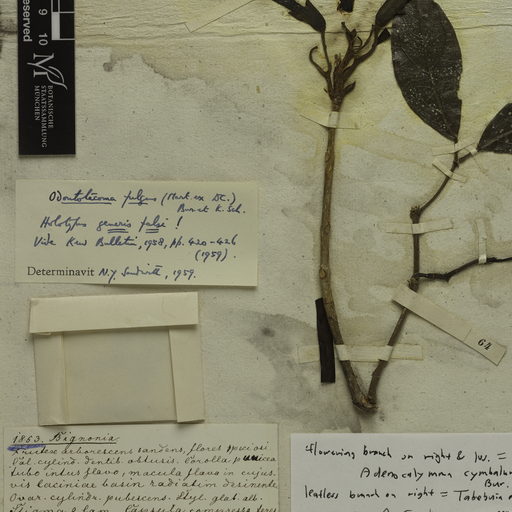 reserved
9 10
M
BOTANISCHE
STAATSSAMMLUNG
MÜNCHEN
Odontotecoma fulgens (Mart. ex DC.)
Bur. et K. Sch.
Holotypus generis falsi !
Vide Kew Bulletin, 1958, pp. 420-426
(1959).
Determinavit N.Y. Sandwith, 1959.
64
1853. Bignonia
Frutex arborescens tandens, flores speciosi
Cal. cylind. dentib. obtusis. Corolla punicea
tubo intus flavo, macula flava in cujus.
vis laciniae basin radiatim desinente
Ovar. cylindr. pubescens. Styl. glab. alb.
Stigma 2 lam. Capsula compressa teres
flowering branch on right & lw. =
Adenocalymma cymbalum
Bur.
leafless branch on right = Tabebuia